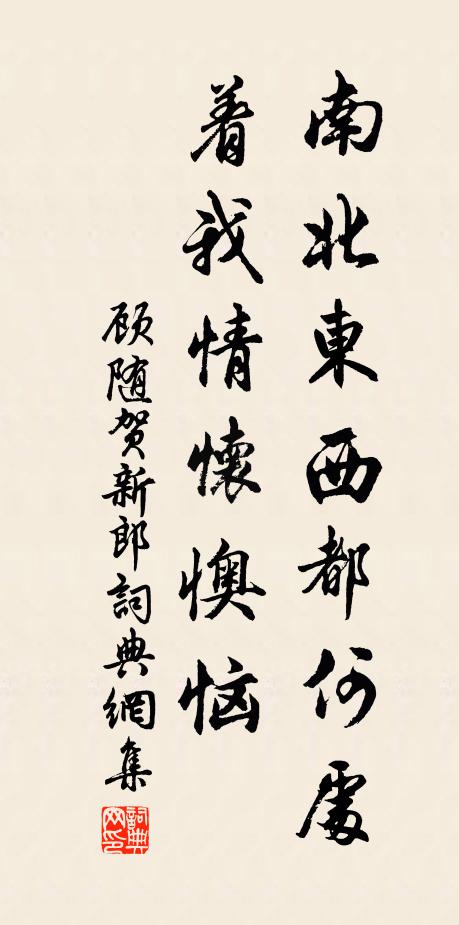 南北東西都何處
着我情懷懊惱
顾随贺新郎詞典網集
詞典网印